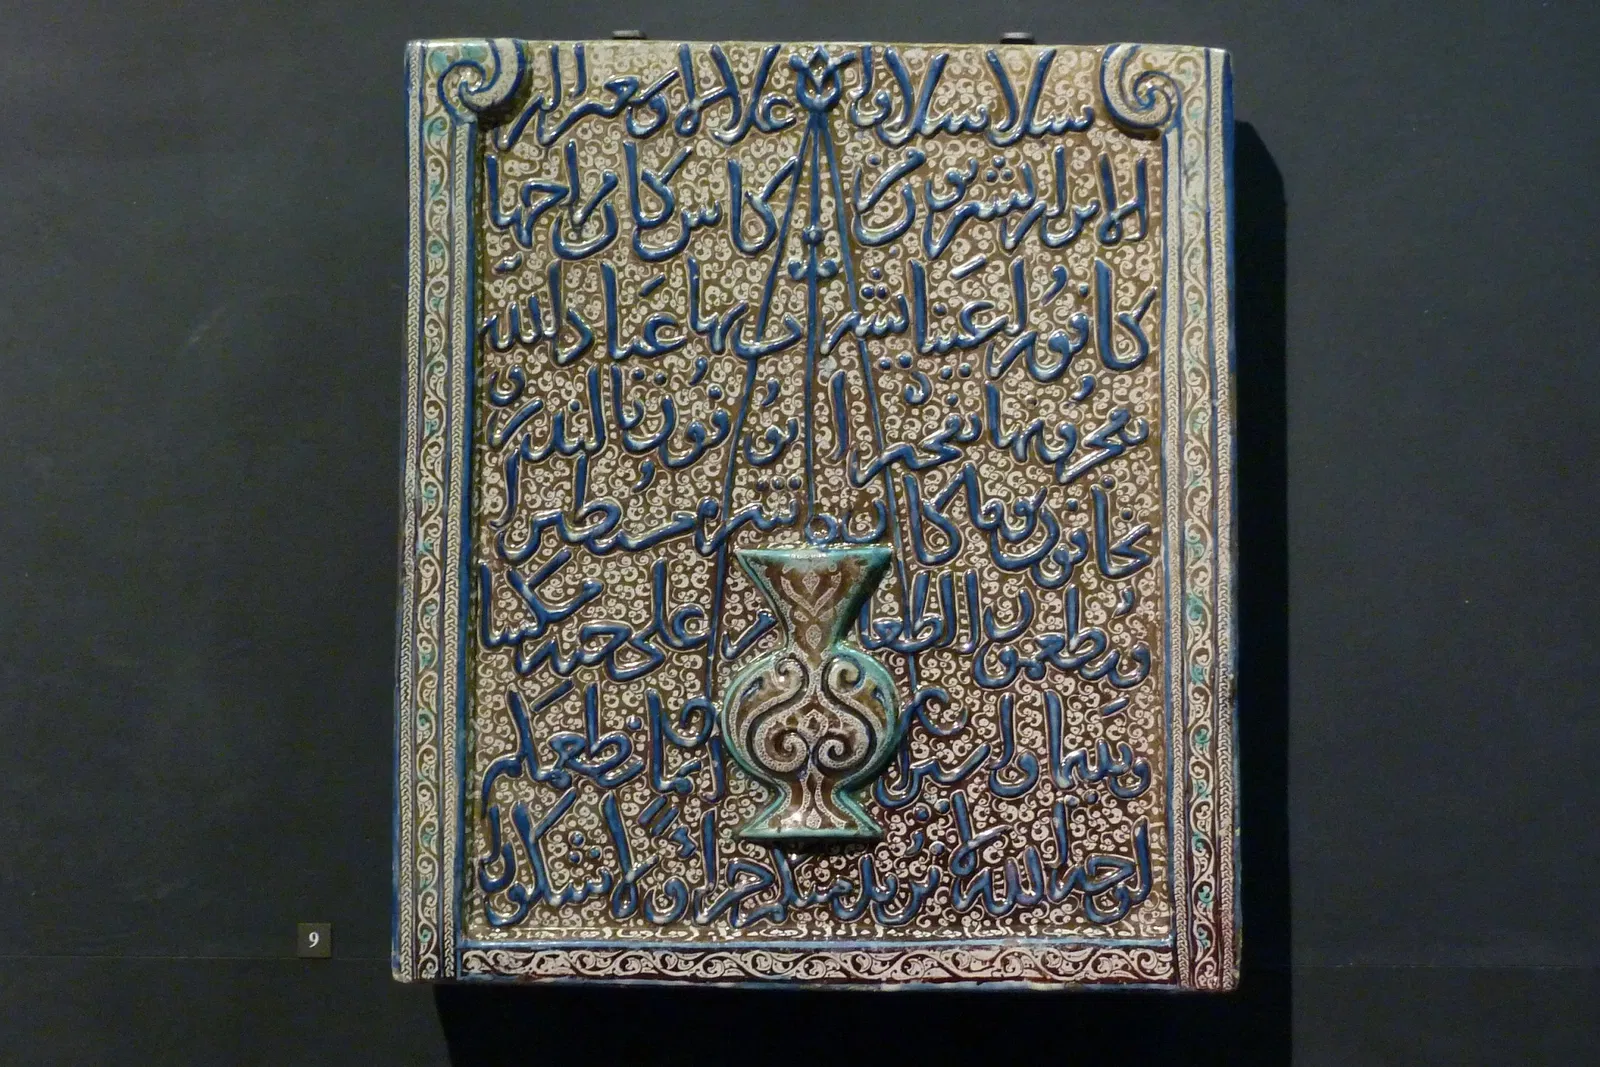 سلاسلا واغلالا وسعيرا ان
الابرار يشربون من كاس كان مزاجها
كافورا عينا يشرب بها عباد الله
يفجرونها تفجيرا يوفون بالنذر و
يخافون يوما كان شره مستطيرا
ويطعمون الطعام على حبه مسكينا
ويتيما واسيرا انما نطعمكم
لوجه الله لا نريد منكم جزاء ولا شكورا
9